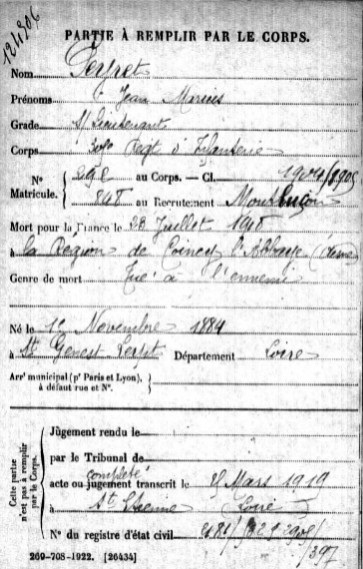 121806
PARTIE À REMPLIR PAR LE CORPS.
Nom Peyret
Prénoms Jean Marius
Grade S/ Lieutenant
Corps Regt d'Infanterie
N° 298 au Corps. — Cl.
Matricule. 848 au Recrutement Montluçon
Mort pour la France le 28 Juillet 1918
à la Region de Coincy l'Abbaye (Aisne
Genre de mort Tué à l'ennemi
Né le Novembre 1884
à St Genest Lerpt Département Loire
Arrt municipal (pr Paris et Lyon),
à défaut rue et N°.
Cette partie
n'est pas à remplir
par le Corps.
Jugement rendu le
par le Tribunal de
complété
acte ou jugement transcrit le Mars 1919
à St Etienne (Loire)
N° du registre d'état civil
397
269-708-1922. [26434]